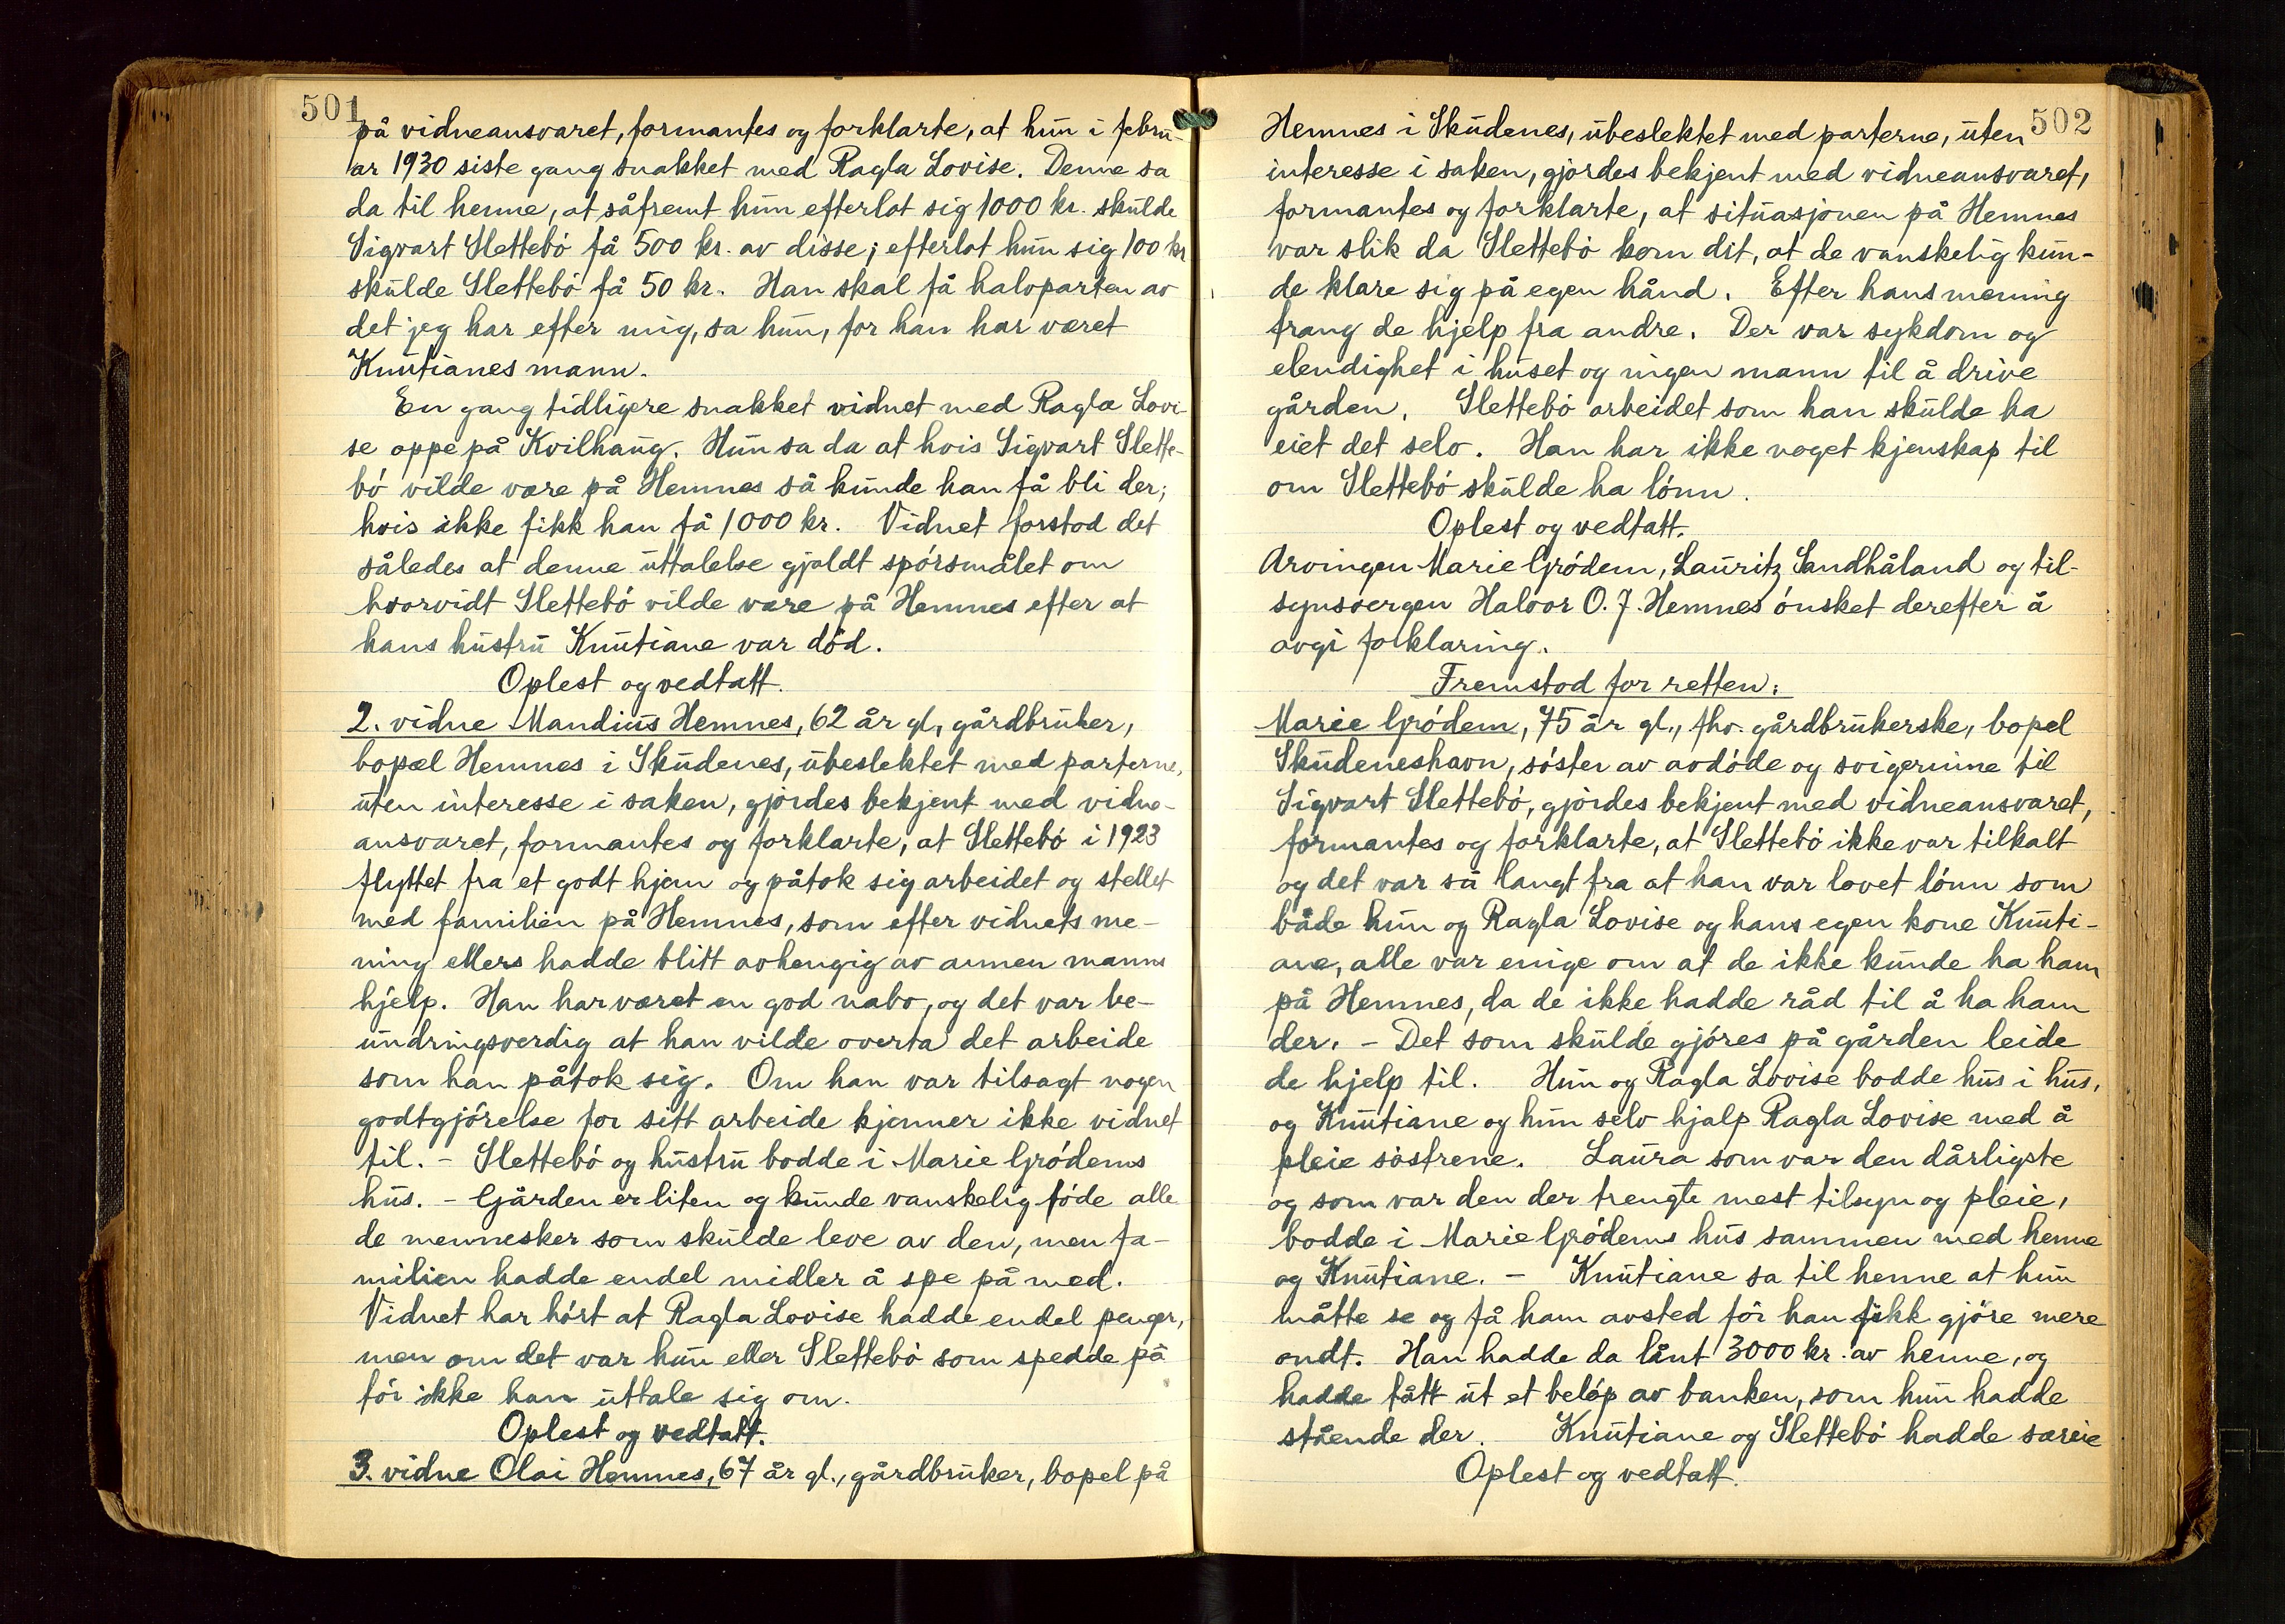 501
på vidneansvaret, formantes og forklarte, at hun i febru-
ar 1930 siste gang snakket med Ragla Lovise. Denne sa
da til henne, at såfremt hun efterlot sig 1000 kr. skulde
Sigvart Slettebö få 500 kr. av disse; efterlot hun sig 100 kr
skulde Slettebö få 50 kr. Han skal få halvparten av
det jeg har efter mig, sa hun, for han har været
Knutianes mann.
En gang tidligere snakket vidnet med Ragla Lovi-
se oppe på Kvilhaug. Hun sa da at hvis Sigvart Slette-
bö vilde være på Hemnes så kunde han få bli der;
hvis ikke fikk han få 1000 kr. Vidnet forstod det
således at denne uttalelse gjaldt spörsmålet om
hvorvidt Slettebö vilde være på Hemnes efter at
hans hustru Knutiane var död.
Oplest og vedtatt.
2. vidne Mandius Hemnes, 62 år gl, gårdbruker,
bopæl Hemnes i Skudenes, ubeslektet med parterne,
uten interesse i saken, gjördes bekjent med vidne-
ansvaret, formantes og forklarte, at Slettebö i 1923
flyttet fra et godt hjem og påtok sig arbeidet og stellet
med familien på Hemnes, som efter vidnets me-
ning ellers hadde blitt avhengig av annen manns
hjelp. Han har været en god nabo, og det var be-
undringsverdig at han vilde overta det arbeide
som han påtok sig. Om han var tilsagt nogen
godtgjörelse for sitt arbeide kjenner ikke vidnet
til. - Slettebö og hustru bodde i Marie Grödems
hus. - Gården er liten og kunde vanskelig föde alle
de mennesker som skulde leve av den, men fa-
milien hadde endel midler å spe på med.
Vidnet har hört at Ragla Lovise hadde endel penger,
men om det var hun eller Slettebö som spedde på
tör ikke han uttale sig om.
Oplest og vedtatt.
3. vidne Olai Hemnes, 67 år gl., gårdbruker, bopel på
502
Hemnes i Skudenes, ubeslektet med parterne, uten
interesse i saken, gjördes bekjent med vidneansvaret,
formantes og forklarte, at situasjonen på Hemnes
var slik da Slettebö kom dit, at de vanskelig kun-
de klare sig på egen hånd. Efter hans mening
trang de hjelp fra andre. Der var sykdom og
elendighet i huset og ingen mann til å drive
gården. Slettebö arbeidet som han skulde ha
eiet det selv. Han har ikke noget kjenskap til
om Slettebö skulde ha lönn.
Oplest og vedtatt.
Arvingen Marie Grödem, Lauritz Sandhåland og til-
synsvergen Halvor O. J. Hemnes önsket derefter å
avgi forklaring.
Fremstod for retten:
Marie Grödem, 75 år gl., fhv. gårdbrukerske, bopel
Skudeneshavn, söster av avdöde og svigerinne til
Sigvart Slettebö, gjördes bekjent med vidneansvaret,
formantes og forklarte, at Slettebö ikke var tilkalt
og det var så langt fra at han var lovet lönn som
både hun og Ragla Lovise og hans egen kone Knuti-
ane, alle var enige om at de ikke kunde ha ham
på Hemnes, da de ikke hadde råd til å ha ham
der. - Det som skulde gjöres på gården leide
de hjelp til. Hun og Ragla Lovise bodde hus i hus,
og Knutiane og hun selv hjalp Ragla Lovise med å
pleie söstrene. Laura som var den dårligste
og som var den der trengte mest tilsyn og pleie,
bodde i Marie Grödems hus sammen med henne
og Knutiane. - Knutiane sa til henne at hun
måtte se og få ham avsted för han fikk gjöre mere
ondt. Han hadde da lånt 3000 kr. av henne, og
hadde tått ut et belöp av banken, som hun hadde
stående der. Knutiane og Slettebö hadde særeie
Oplest og vedtatt.